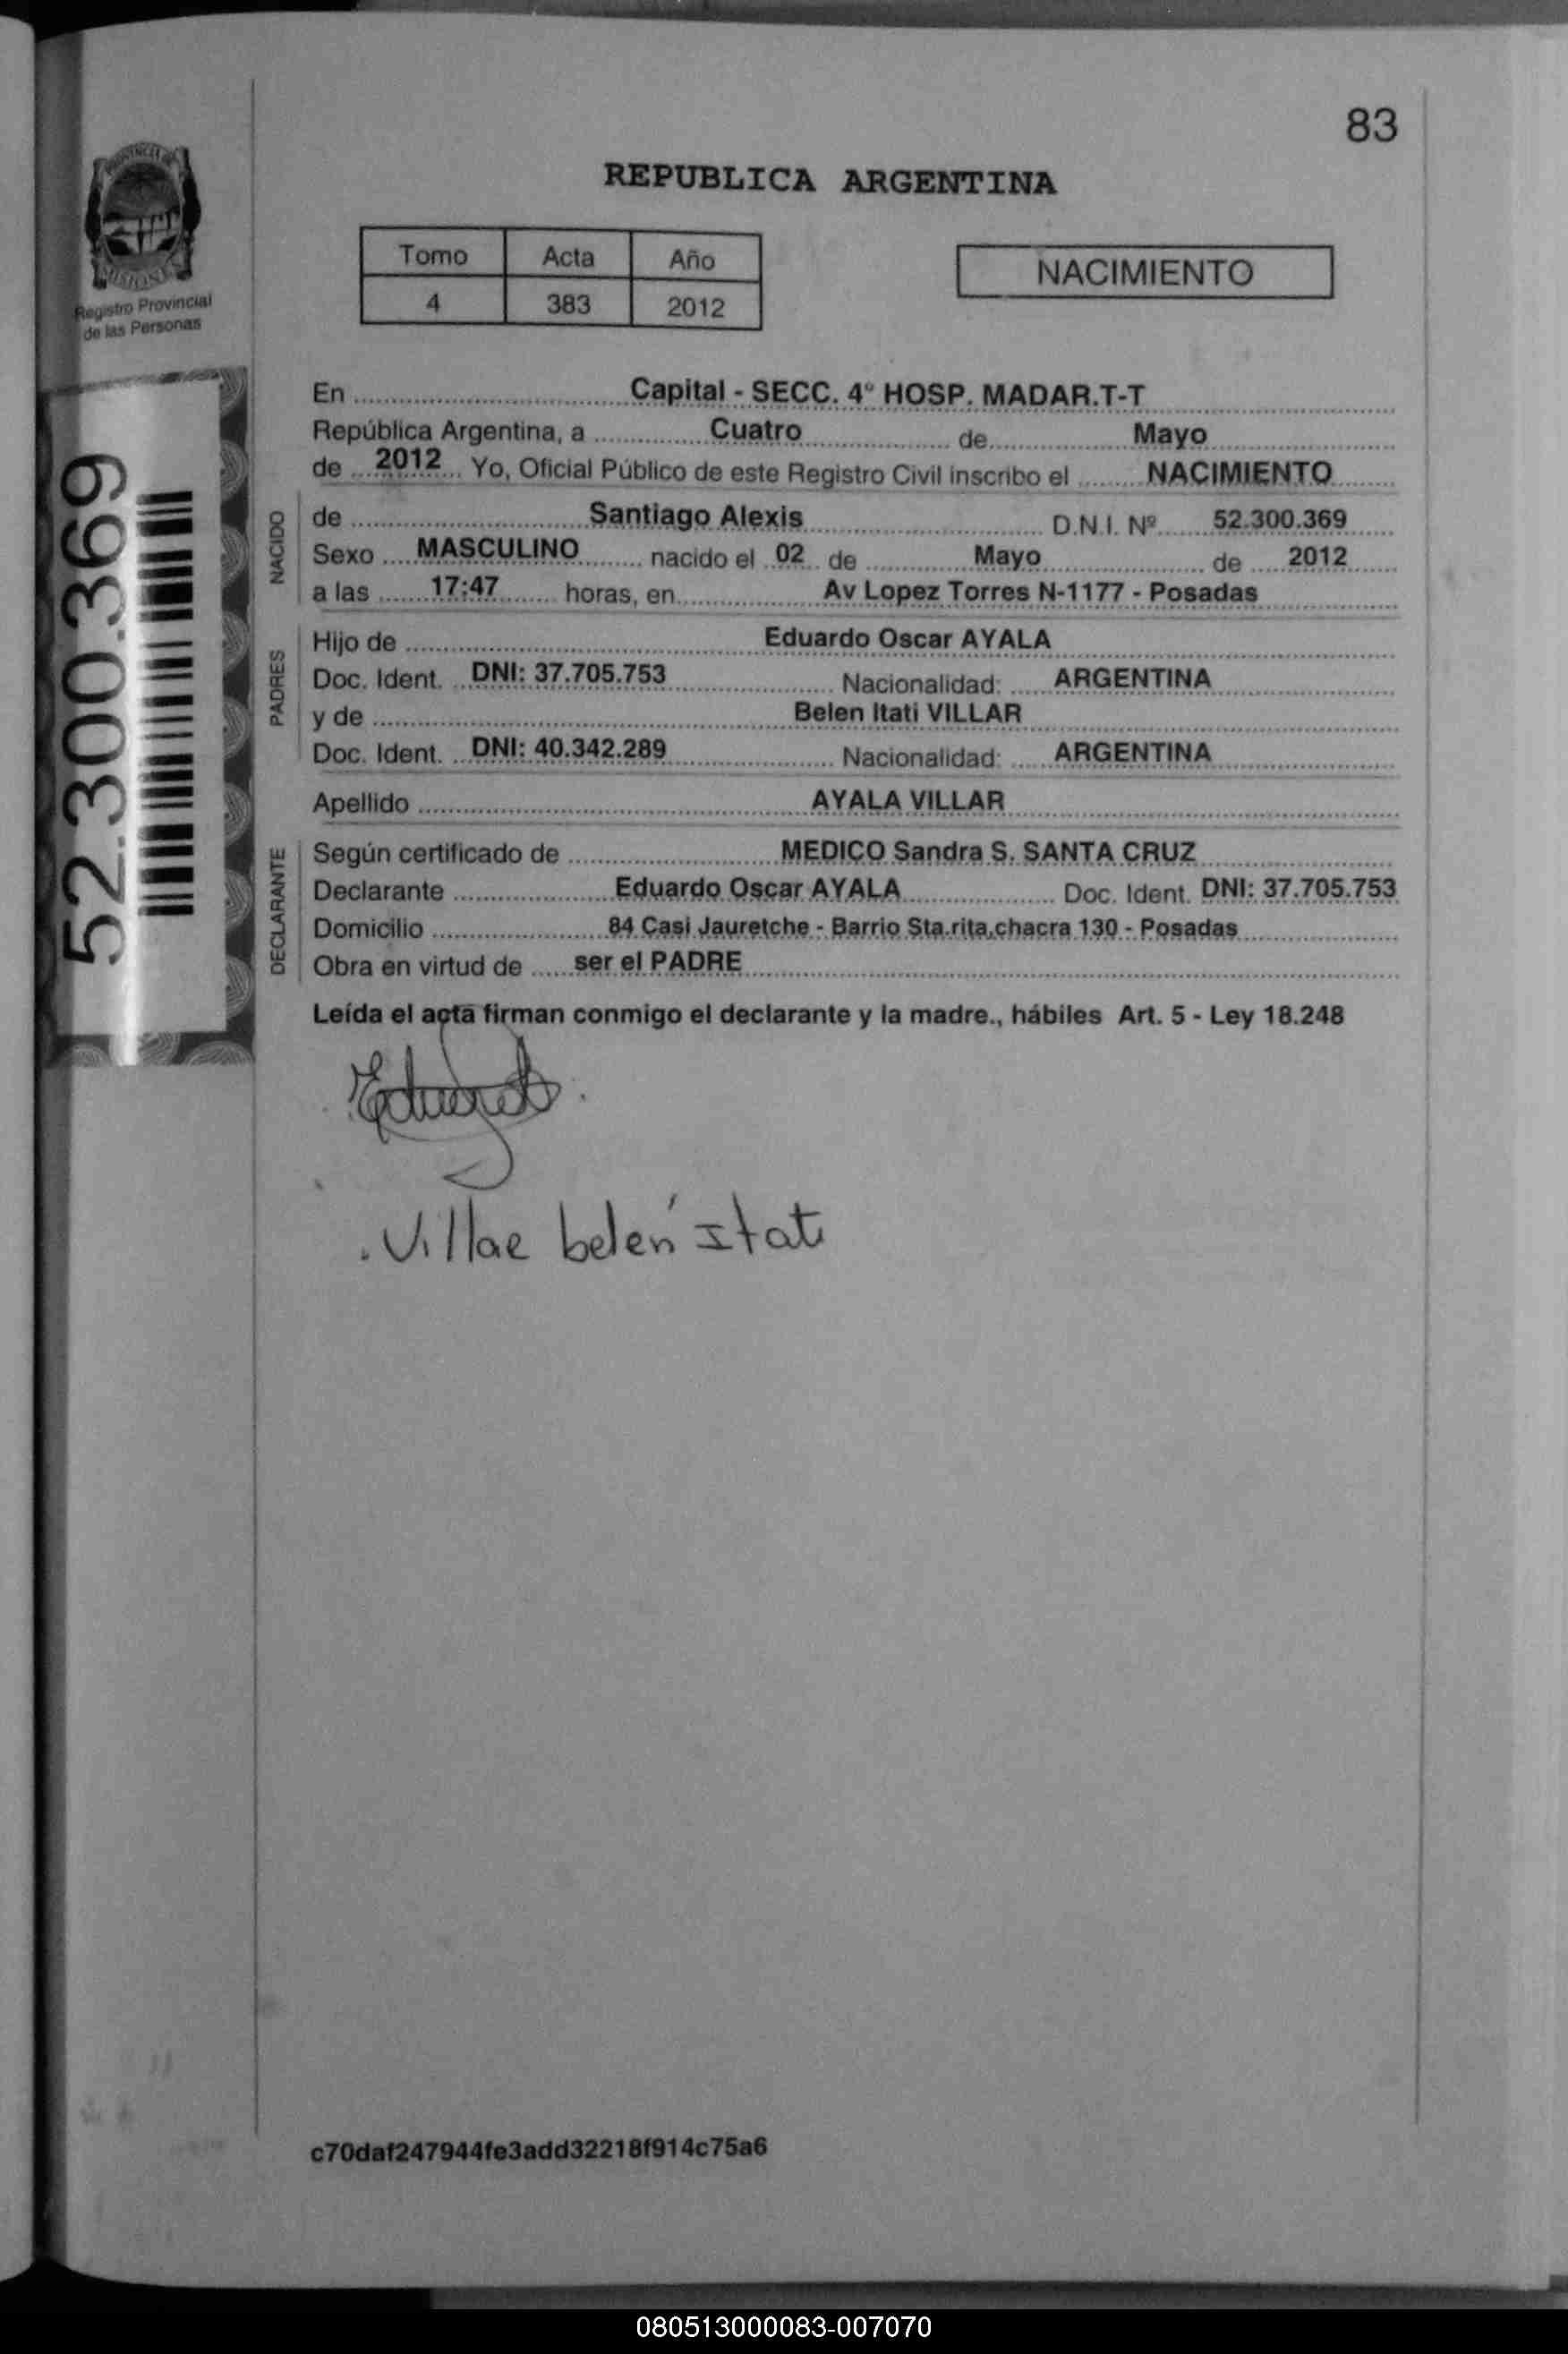 83
PROVINCIA DE
MISIONES
Registro Provincial
de las Personas
REPUBLICA ARGENTINA
Tomo Acta Año
4 383 2012
NACIMIENTO
52.300.369
En Capital - SECC. 4º HOSP. MADAR.T-T
República Argentina, a Cuatro de Mayo
de 2012 Yo, Oficial Público de este Registro Civil inscribo el NACIMIENTO
NACIDO
de Santiago Alexis D.N.I. Nº 52.300.369
Sexo MASCULINO nacido el 02 de Mayo de 2012
a las 17:47 horas, en Av Lopez Torres N-1177 - Posadas
PADRES
Hijo de Eduardo Oscar AYALA
Doc. Ident. DNI: 37.705.753 Nacionalidad: ARGENTINA
y de Belen Itati VILLAR
Doc. Ident. DNI: 40.342.289 Nacionalidad: ARGENTINA
Apellido AYALA VILLAR
DECLARANTE
Según certificado de MEDICO Sandra S. SANTA CRUZ
Declarante Eduardo Oscar AYALA Doc. Ident. DNI: 37.705.753
Domicilio 84 Casi Jauretche - Barrio Sta.rita,chacra 130 - Posadas
Obra en virtud de ser el PADRE
Leída el acta firman conmigo el declarante y la madre., hábiles Art. 5 - Ley 18.248
Eduardo
Villar belén Itati
c70daf247944fe3add32218f914c75a6
080513000083-007070